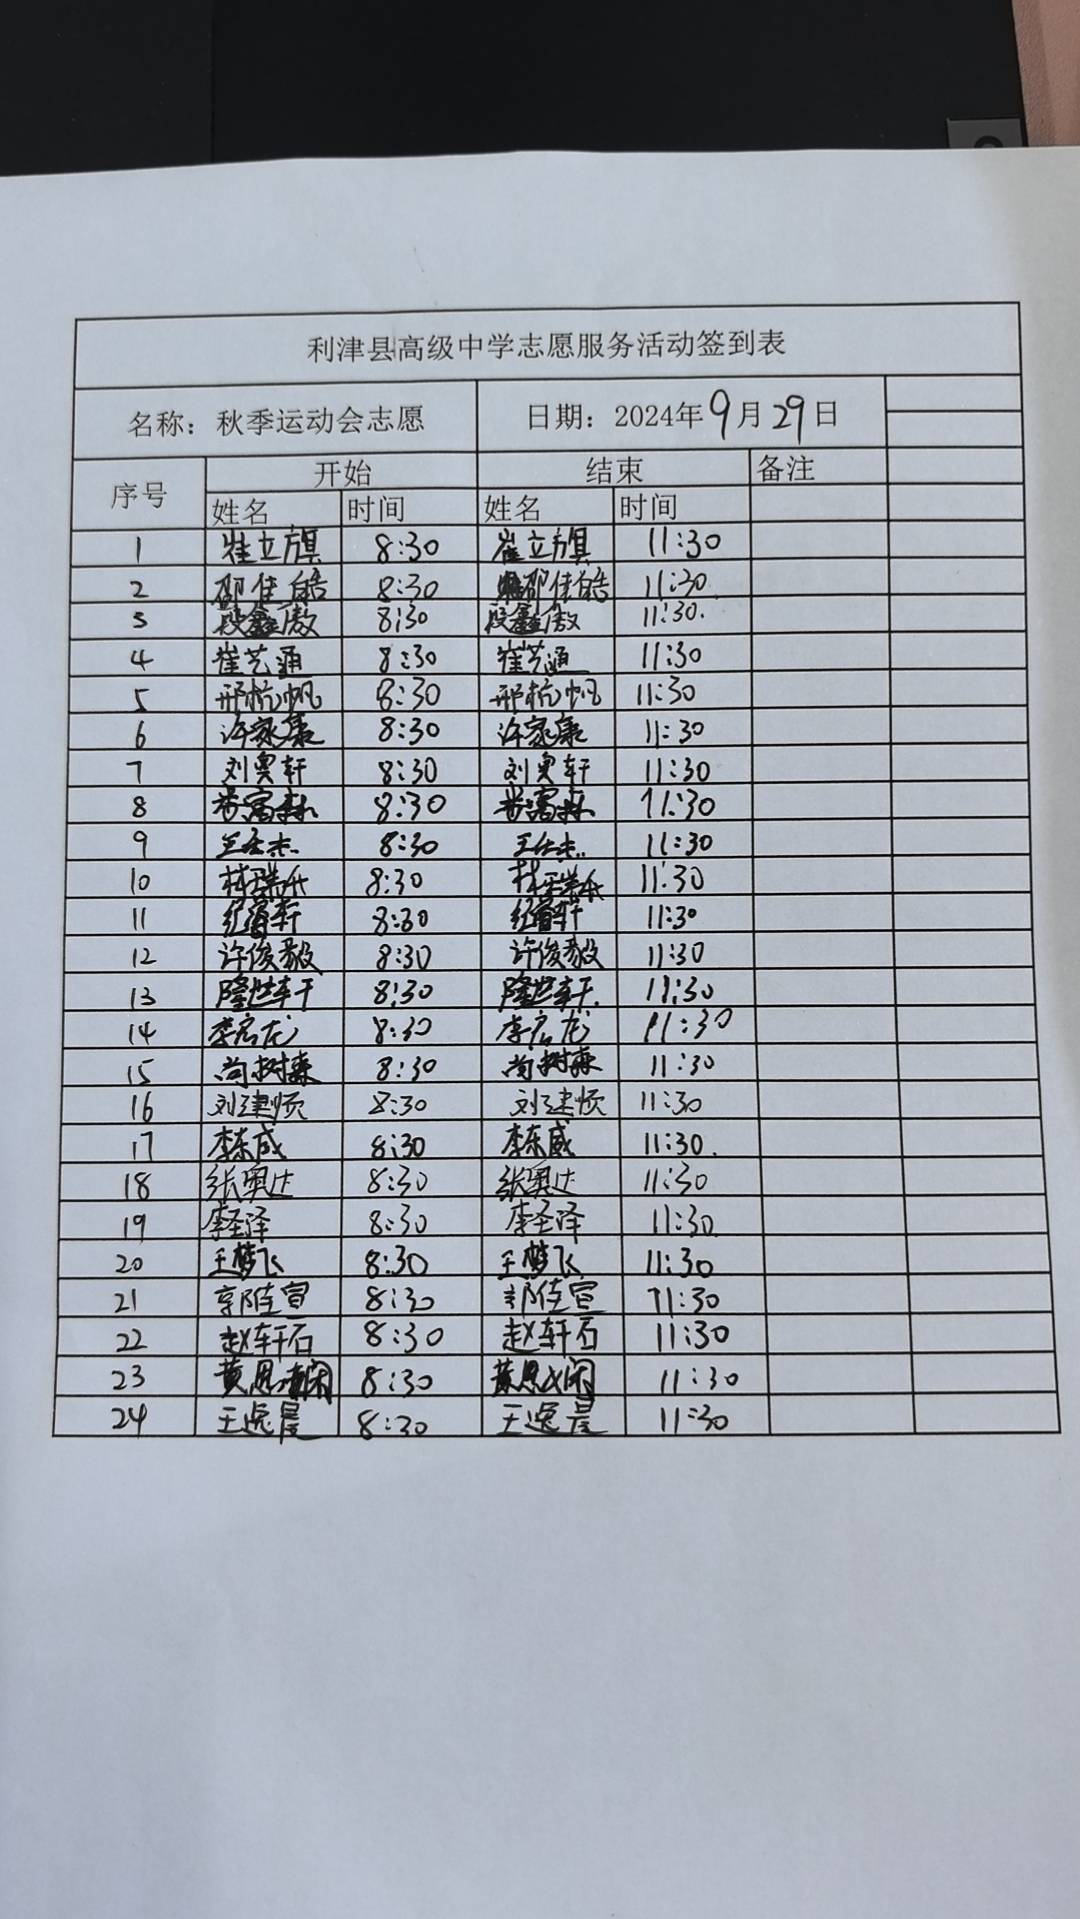 利津县高级中学志愿服务活动签到表
名称：秋季运动会志愿 日期：2024年9月29日
序号 开始 结束 备注
姓名 时间 姓名 时间
1 崔立旗 8:30 崔立旗 11:30
2 邵佳皓 8:30 邵佳皓 11:30
3 段鑫傲 8:30 段鑫傲 11:30.
4 崔艺通 8:30 崔艺通 11:30
5 邢杭帆 8:30 邢杭帆 11:30
6 许家康 8:30 许家康 11:30
7 刘奥轩 8:30 刘奥轩 11:30
8 8:30 11:30
9 王任杰 8:30 王任杰 11:30
10 8:30 11:30
11 纪 轩 8:30 纪 轩 11:30
12 许俊毅 8:30 许俊毅 11:30
13 隆世轩 8:30 隆世轩 11:30
14 李启龙 8:30 李启龙 11:30
15 尚树森 8:30 尚树森 11:30
16 刘建顺 8:30 刘建顺 11:30
17 李东威 8:30 李东威 11:30.
18 张奥达 8:30 张奥达 11:30
19 李圣泽 8:30 李圣泽 11:30
20 王梦飞 8:30 王梦飞 11:30
21 郭佳宣 8:30 郭佳宣 11:30
22 赵轩石 8:30 赵轩石 11:30
23 黄恩 8:30 黄恩 11:30
24 王逸晨 8:30 王逸晨 11:30